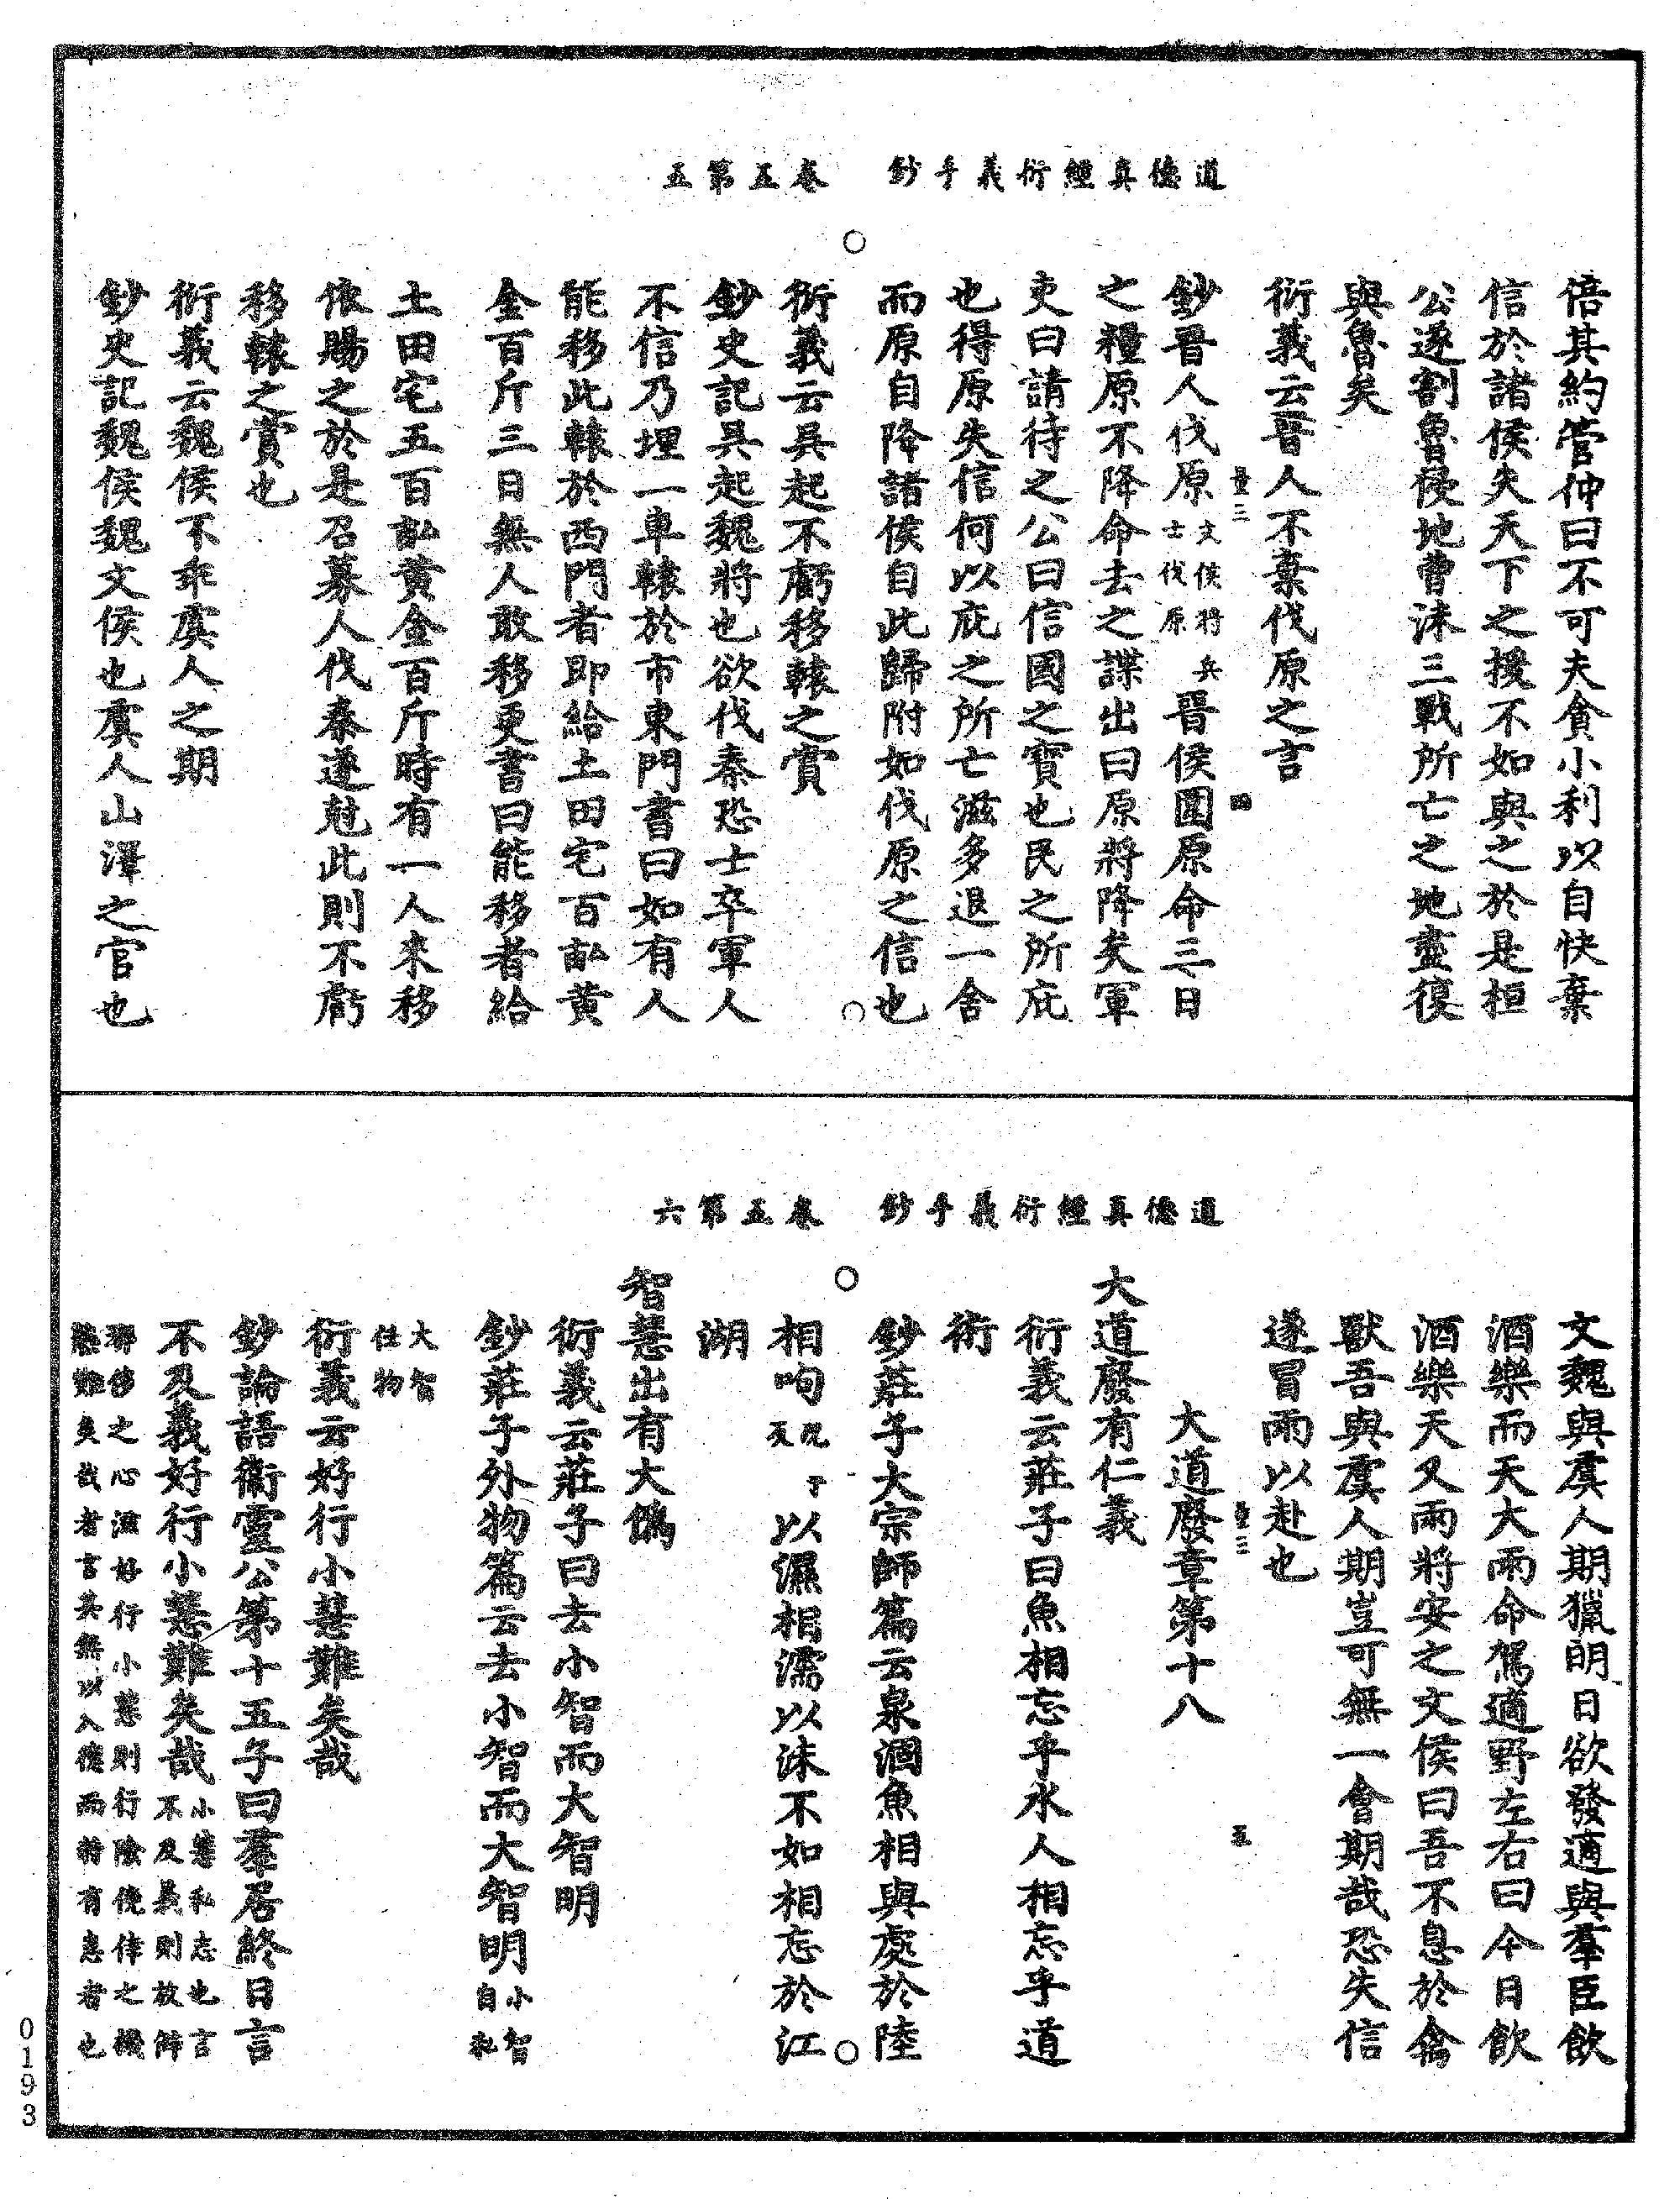 道德真經衍義手鈔　卷五第五
倍其約管仲曰不可夫貪小利以自快棄
信於諸侯失天下之援不如與之於是桓
公遂割魯侵地曹沬三戰所亡之地盡復
與魯矣
衍義云晉人不棄伐原之言
三　四
鈔晉人伐原文侯將兵士伐原晉侯圍原命三日
之糧原不降命去之諜出曰原將降矣軍
吏曰請待之公曰信國之寶也民之所庇
也得原失信何以庇之所亡滋多退一舍
而原自降諸侯自此歸附如伐原之信也
衍義云吳起不虧移轅之賞
鈔史記吳起魏將也欲伐秦恐士卒軍人
不信乃埋一車轅於市東門書曰如有人
能移此轅於西門者即給土田宅百畝黃
金百斤三日無人敢移更書曰能移者給
土田宅五百畝黃金百斤時有一人來移
依賜之於是召募人伐秦遂尅此則不虧
移轅之賞也
衍義云魏侯不乖虞人之期
鈔史記魏侯魏文侯也虞人山澤之官也
道德真經衍義手鈔　卷五第六
文魏與虞人期獵明日欲發適與羣臣飲
酒樂而天大雨命駕適野左右曰今日飲
酒樂天又雨將安之文侯曰吾不息於禽
獸吾與虞人期豈可無一會期哉恐失信
遂冒雨以赴也
三　五
大道廢章第十八
大道廢有仁義
衍義云莊子曰魚相忘乎水人相忘乎道
術
鈔莊子大宗師篇云泉涸魚相與處於陸
相呴况于反以濕相濡以沫不如相忘於江
湖
智慧出有大僞
衍義云莊子曰去小智而大智明
鈔莊子外物篇云去小智而大智明小智自私
大智任物
衍義云好行小慧難矣哉
鈔論語衞靈公第十五子曰羣居終日言
不及義好行小慧難矣哉小慧私志也言不及義則放僻
邪侈之心滋好行小慧則行險僥倖之機
難矣哉者言其無以入德而將有患者也
0193